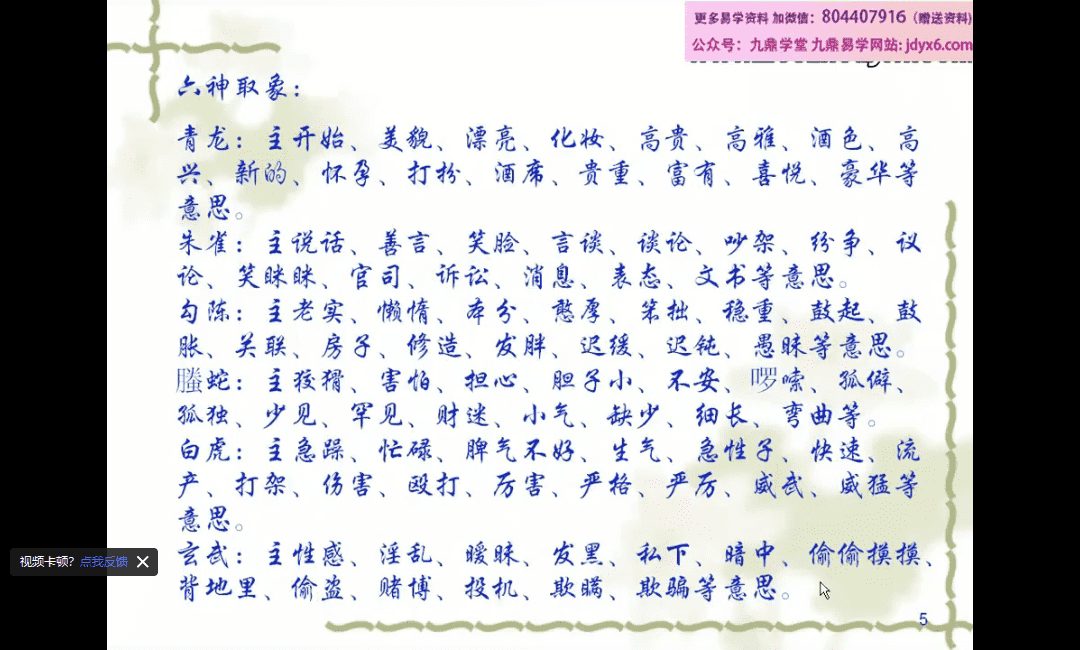 更多易学资料 加微信：804407916（赠送资料）
公众号：九鼎学堂 九鼎易学网站: jdyx6.com
六神取象：
青龙：主开始、美貌、漂亮、化妆、高贵、高雅、酒色、高
兴、新的、怀孕、打扮、酒席、贵重、富有、喜悦、豪华等
意思。
朱雀：主说话、善言、笑脸、言谈、谈论、吵架、纷争、议
论、笑眯眯、官司、诉讼、消息、表态、文书等意思。
勾陈：主老实、懒惰、本分、憨厚、笨拙、稳重、鼓起、鼓
胀、关联、房子、修造、发胖、迟缓、迟钝、愚昧等意思。
螣蛇：主狡猾、害怕、担心、胆子小、不安、啰嗦、孤僻、
孤独、少见、罕见、财迷、小气、缺少、细长、弯曲等。
白虎：主急躁、忙碌、脾气不好、生气、急性子、快速、流
产、打架、伤害、殴打、厉害、严格、严厉、威武、威猛等
意思。
玄武：主性感、淫乱、暧昧、发黑、私下、暗中、偷偷摸摸、
背地里、偷盗、赌博、投机、欺瞒、欺骗等意思。
视频卡顿? 点我反馈
5